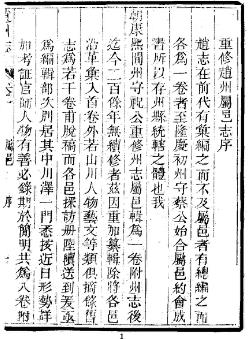 重修趙州屬邑志序
趙志在前代有彙編之而不及屬邑者有總編之而
各為一卷者至隆慶初州守蔡公始合屬邑約會成
書所以存州縣統轄之體也我
朝康熙間州守祝公重修屬邑輯為一卷附州志後
迄今二百餘年無續修者茲因重加纂輯除將各邑
沿革彙入首卷外若山川人物藝文等類俱摘條舊
志為若干卷甫脫稿而各邑採訪冊陸續送到爰亟
為編輯都次別居其中川澤一門悉按近日形勢詳
加考証官師人物有善必錄期於簡明共為八卷附
1